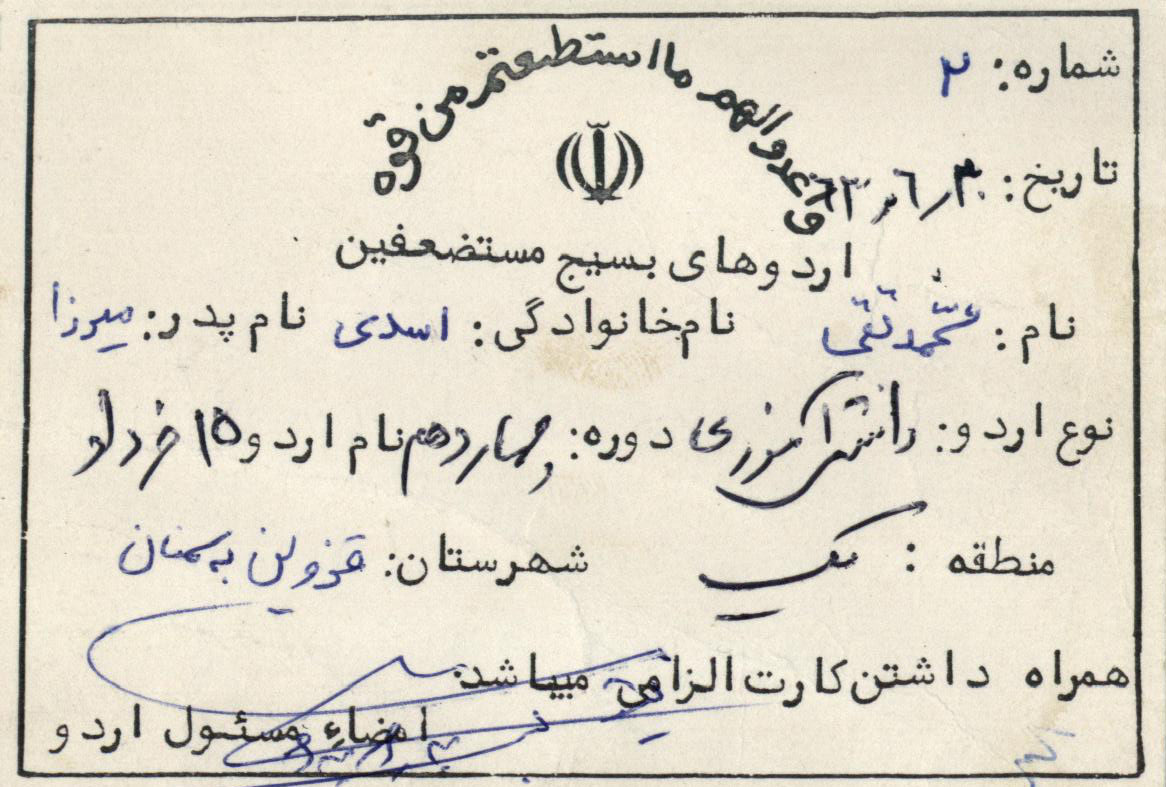 واعدوالهم مااستطعتم من قوة
شماره: ۲
تاریخ: ۶۳/۶/۳۰
اردوهای بسیج مستضعفین
نام: محمدتقی نام‌خانوادگی: اسدی نام پدر: میرزا
نوع اردو: دانش‌آموزی دوره: چهاردهم نام اردو ۱۵ خرداد
منطقه: یک شهرستان: قزوین به سمنان
همراه داشتن کارت الزامی میباشد.
امضاء مسئول اردو